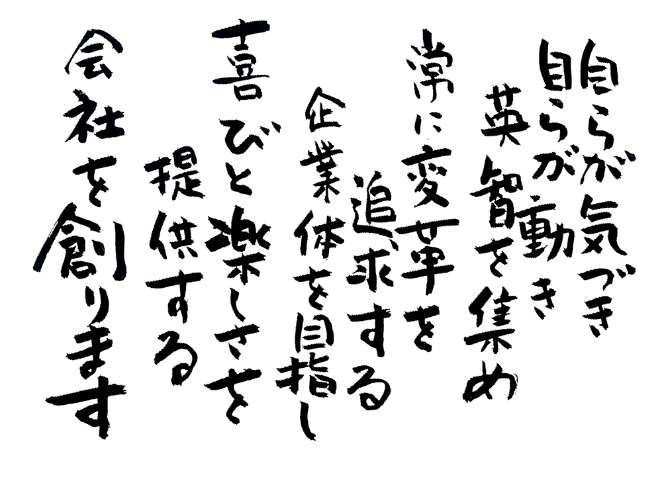 自らが気づき
自らが動き
英智を集め
常に変革を
追求する
企業体を目指し
喜びと楽しさを
提供する
会社を創ります